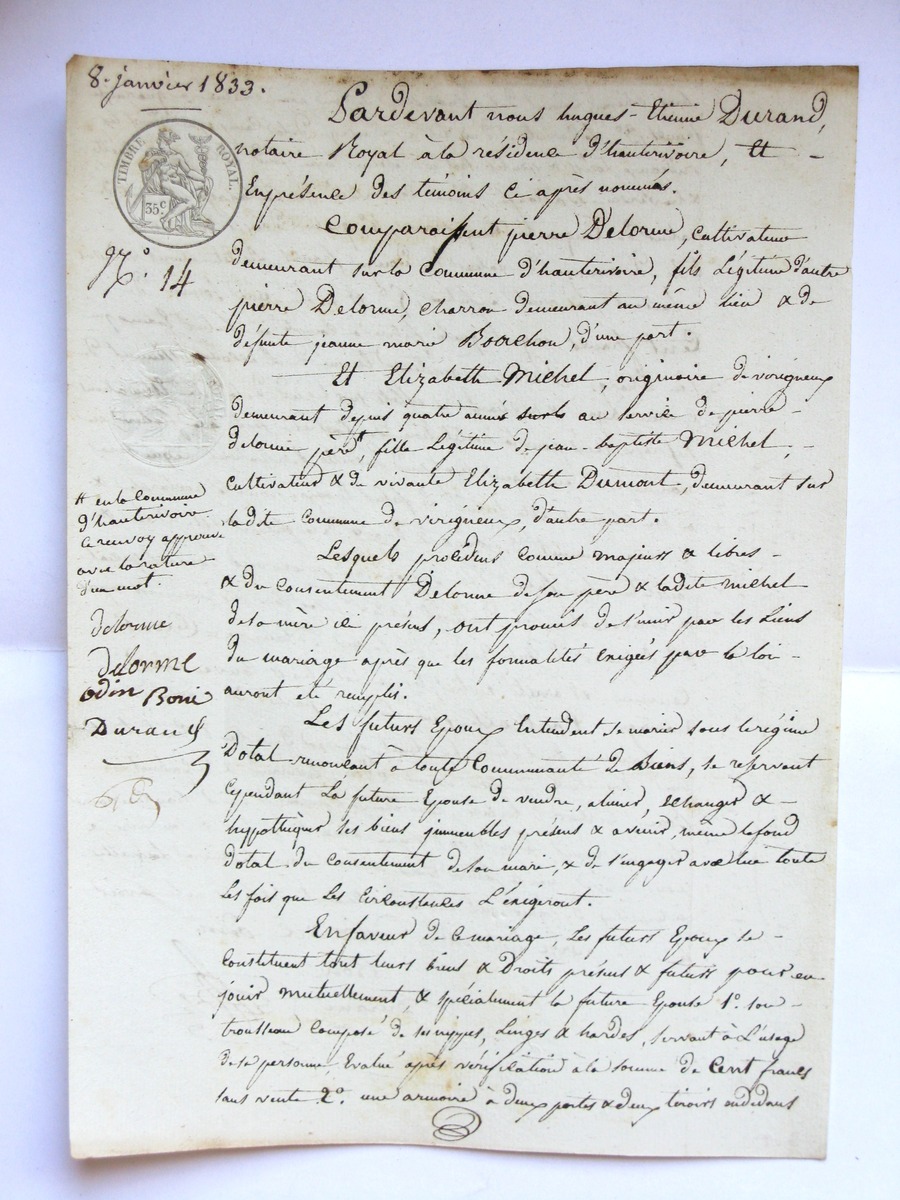 8. janvier 1833.
TIMBRE ROYAL.
35c
N.° 14
Pardevant nous hugues-Etienne Durand,
notaire Royal à la résidence d'hauterivoire, Et -
Enprésence des témoins ci après nommés.
Comparaissent pierre Delorme, cultivateur
demeurant sur la Commune d'hauterivoire, fils Légitime d'autre
pierre Delorme, charron demeurant au même lieu & de
défunte jeanne marie Bouchon, d'une part.
Et Elizabeth Michel, originaire de virigneux
demeurant depuis quatre années au service de pierre -
delorme père #, fille Légitime de jean-baptiste Michel, -
cultivateur & de vivante Elizabeth Dumont, demeurant sur
ladite Commune de virigneux, d'autre part.
# en la Commune
d'hauterivoire
ce renvoy approuvé
avec la rature
d'un mot.
delorme
delorme
odin Boni
Durand
Lesquels procédans comme majeurs & libres -
& du Consentement Delorme de son père & ladite Michel
de sa mère ici présens, ont promis de s'unir par les Liens
du mariage après que les formalités exigées par la loi -
auront été remplis.
Les futurs Epoux Entendent se marier sous le régime
Dotal renonçant à toute Communauté de Biens, se réservant
Cependant La future Epouse de vendre, aliéner, echanger & -
hypothéquer ses biens immeubles présens & avenir, même le fond
dotal du Consentement de son mari, & de s'engager avec lui toute
Les fois que Les Circonstances L'éxigeront.
En faveur de ce mariage, Les futurs Epoux se -
Constituent tout leurs biens & Droits présens & futurs pour en
jouir mutuellement, & spécialement la future Epouse 1.° son -
trousseau Composé de ses nippes, Linges & hardes, servant à L'usage
de sa personne, Evalué après vérification à la somme de Cent francs
sans vente 2.° une armoire à deux portes & deux tiroirs endedans